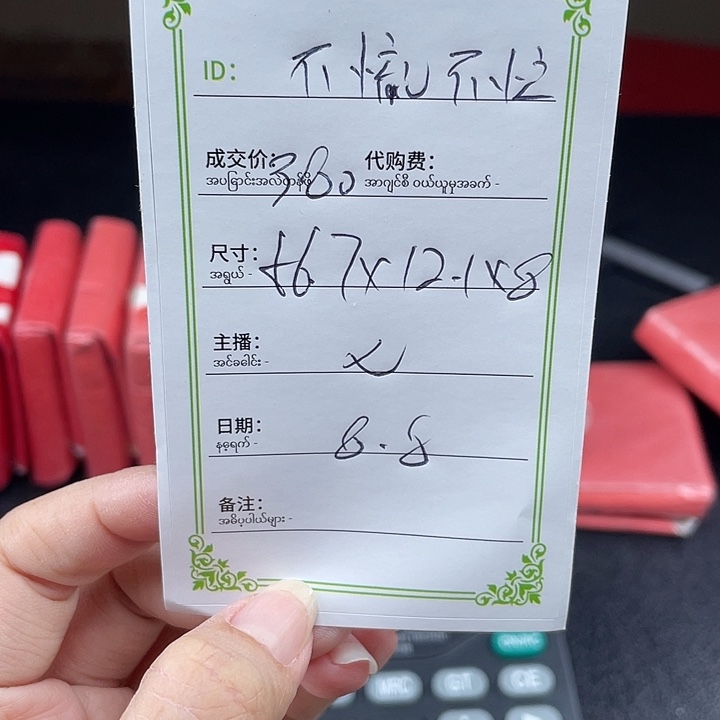 ID: 不慌不忙
成交价: 380 代购费:
အပြောင်းအလဲတန်ဖိုး အာဂျင်စီ ဝယ်ယူမှုအခက် -
尺寸: 56.7x12.1x8
အရွယ် -
主播:
အင်ခေါင်း -
日期: 8.8
နေ့ရက် -
备注:
အဓိပ္ပါယ်များ -
MRC GT CE